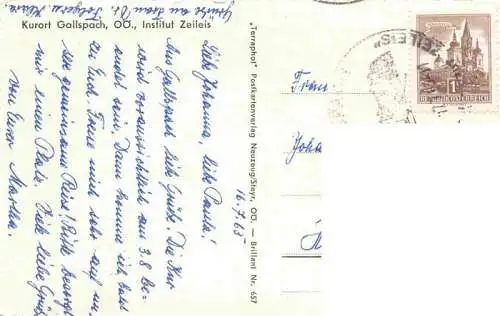 Grüße an Frau Dr.
Kurort Gallspach, OÖ., Institut Zeileis
16.7.65
Liebe Johanna, liebe Paula!
Aus Gallspach liebe Grüße. Die Kur
wird voraussichtlich am 3.8 be-
endet sein. Dann komme ich bald
zu Euch. Freue mich sehr auf un-
sere gemeinsame Reise! Bitte besorgt
mir einen Platz. Viele liebe Grüße
von Eurer Martha.
„Terraphot" Postkartenverlag Neuzeug/Steyr, OÖ. — Brillant Nr. 657
Frau
Joha
ZEILEIS"
REPUBLIK ÖSTERREICH